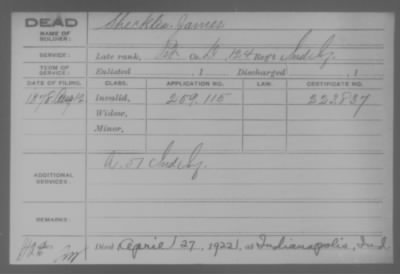 DEAD
NAME OF SOLDIER:
Sheckles, James
SERVICE:
Late rank, Pvt Co. D, 124 Reg't Ind Inf.
TERM OF SERVICE:
Enlisted , 1 Discharged , 1
DATE OF FILING. CLASS. APPLICATION NO. LAW. CERTIFICATE NO.
1878 Aug 12 Invalid, 259.115 223837
Widow,
Minor,
ADDITIONAL SERVICES:
Ind Inf.
REMARKS:
Died April 27, 1922, at Indianapolis, Ind.